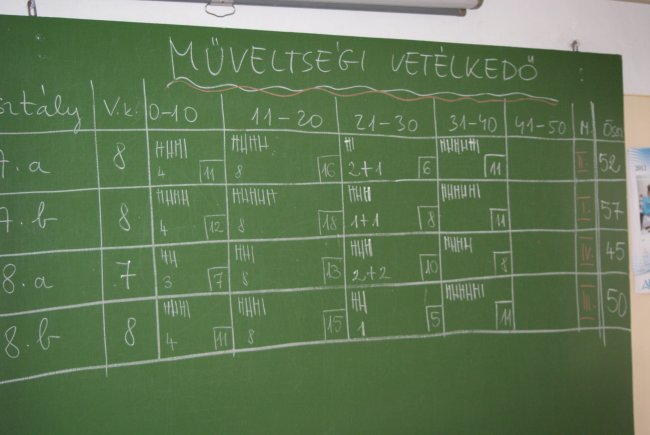 MŰVELTSÉGI VETÉLKEDŐ
sztály V.k. 0-10 11-20 21-30 31-40 41-50 M. Össz
7.a 8 4 11 8 16 2+1 6 11 II. 52
7.b 8 4 12 8 18 1+1 8 11 I. 57
8.a 7 3 7 8 13 2+2 10 8 IV. 45
8.b 8 4 11 8 15 1 5 11 III. 50